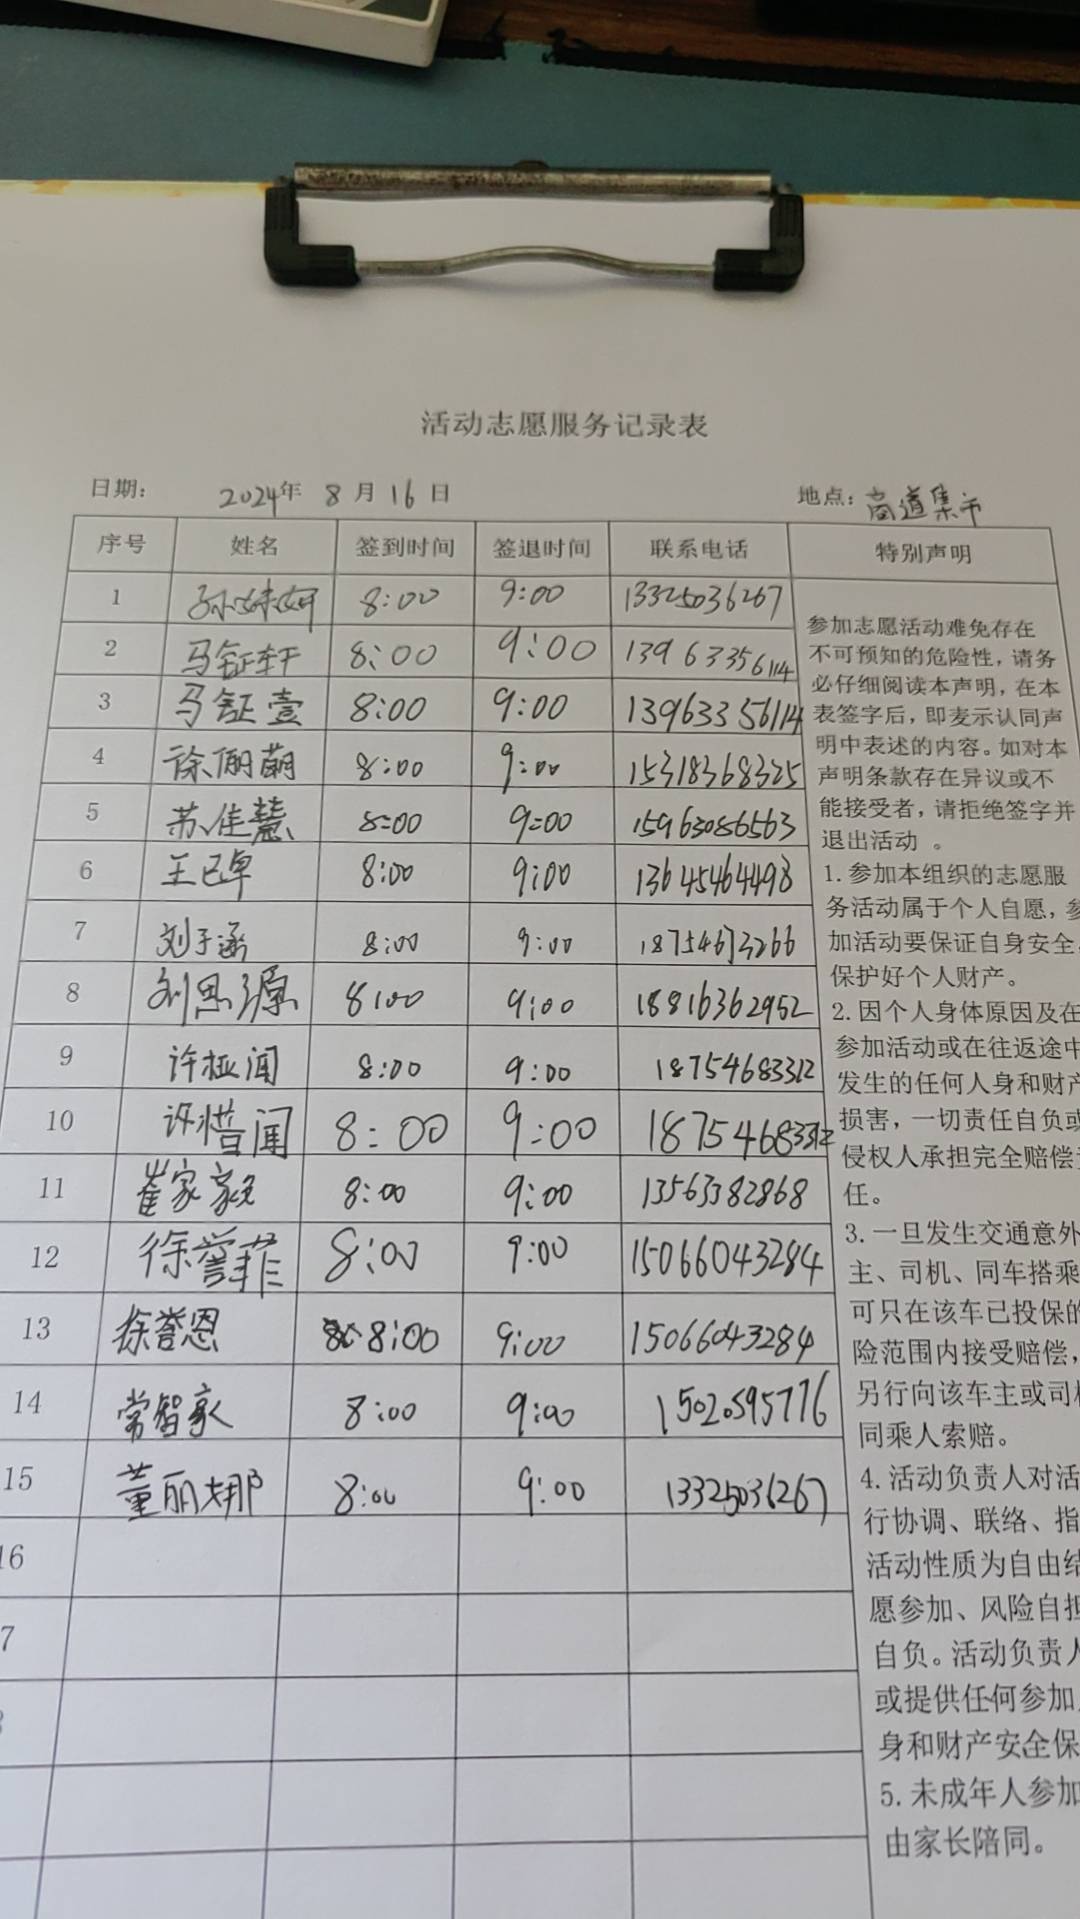 活动志愿服务记录表
日期： 2024年 8 月 16 日 地点：商道集市
序号 姓名 签到时间 签退时间 联系电话 特别声明
1 孙 8:00 9:00 13325036267
2 马钲轩 8:00 9:00 13963356114
3 马钲壹 8:00 9:00 13963356114
4 徐 萌 8:00 9:00 15318368325
5 苏佳慧 8:00 9:00 15963086563
6 王已卓 8:00 9:00 13645464498
7 刘子涵 8:00 9:00 18754673266
8 刘思源 8:00 9:00 18816362952
9 许桠闻 8:00 9:00 18754683312
10 许惜闻 8:00 9:00 18754683312
11 崔家豪 8:00 9:00 13563382868
12 徐誉菲 8:00 9:00 15066043284
13 徐誉恩 8:00 9:00 15066043284
14 常智豪 8:00 9:00 15020595776
15 董丽娜 8:00 9:00 13325036267
16
7
参加志愿活动难免存在
不可预知的危险性，请务
必仔细阅读本声明，在本
表签字后，即表示认同声
明中表述的内容。如对本
声明条款存在异议或不
能接受者，请拒绝签字并
退出活动 。
1.参加本组织的志愿服
务活动属于个人自愿，参
加活动要保证自身安全，
保护好个人财产。
2.因个人身体原因及在
参加活动或在往返途中
发生的任何人身和财产
损害，一切责任自负或
侵权人承担完全赔偿责
任。
3.一旦发生交通意外
主、司机、同车搭乘
可只在该车已投保的
险范围内接受赔偿，
另行向该车主或司机
同乘人索赔。
4.活动负责人对活
行协调、联络、指
活动性质为自由结
愿参加、风险自担
自负。活动负责人
或提供任何参加
身和财产安全保
5.未成年人参加
由家长陪同。